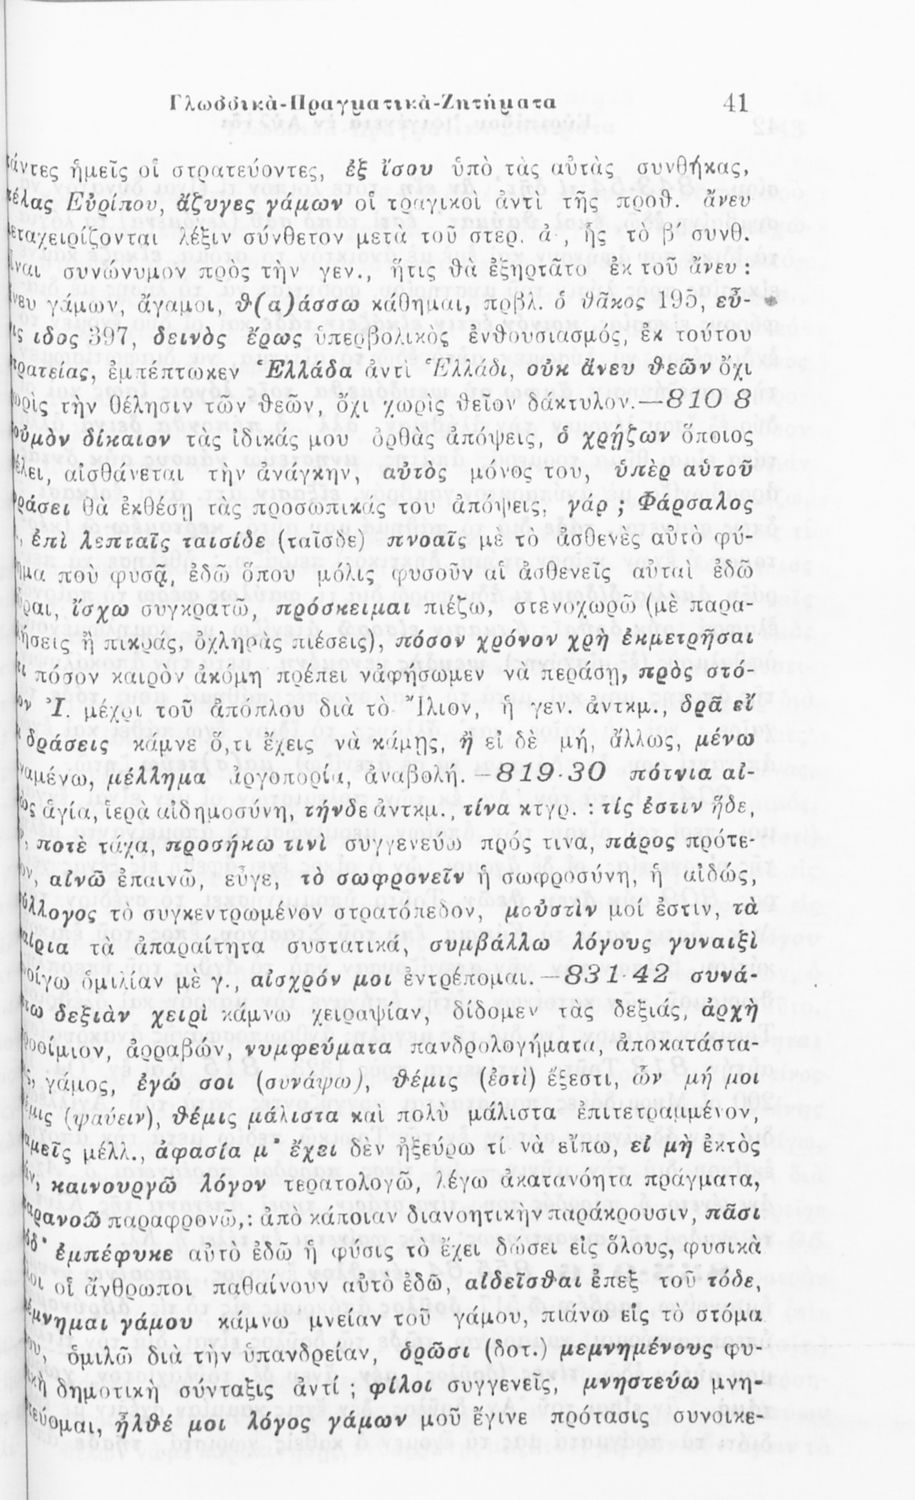 Γλωσσικὰ-Πραγματικὰ-Ζητήματα 41
άντες ἡμεῖς οἱ στρατεύοντες, ἐξ ἴσου ὑπὸ τὰς αὐτὰς συνθήκας,
έλας Εὐρίπου, ἄζυγες γάμων οἱ τραγικοὶ ἀντὶ τῆς προθ. ἄνευ
εταχειρίζονται λέξιν σύνθετον μετὰ τοῦ στερ. ἀ-, ἧς τὸ β' συνθ.
ναι συνώνυμον πρὸς τὴν γεν., ἥτις θὰ ἐξηρτᾶτο ἐκ τοῦ ἄνευ:
ευ γάμων, ἄγαμοι, θ(α)άσσω κάθημαι, πρβλ. ὁ θᾶκος 195, εὔ-
ις ιδος 397, δεινὸς ἔρως ὑπερβολικὸς ἐνθουσιασμός, ἐκ τούτου
ρατείας, ἐμπέπτωκεν Ἑλλάδα ἀντὶ Ἑλλάδι, οὐκ ἄνευ θεῶν ὄχι
ωρὶς τὴν θέλησιν τῶν θεῶν, ὄχι χωρὶς θεῖον δάκτυλον.—810 8
οὐμὸν δίκαιον τὰς ἰδικάς μου ὀρθὰς ἀπόψεις, ὁ χρῄζων ὅποιος
έλει, αἰσθάνεται τὴν ἀνάγκην, αὐτὸς μόνος του, ὑπὲρ αὑτοῦ
ράσει θὰ ἐκθέσῃ τὰς προσωπικάς του ἀπόψεις, γάρ ; Φάρσαλος
, ἐπὶ λεπταῖς ταισίδε (ταῖσδε) πνοαῖς μὲ τὸ ἀσθενὲς αὐτὸ φύ-
ημα ποὺ φυσᾷ, ἐδῶ ὅπου μόλις φυσοῦν αἱ ἀσθενεῖς αὐταὶ ἐδῶ
ραι, ἴσχω συγκρατῶ, πρόσκειμαι πιέζω, στενοχωρῶ (μὲ παρα-
ήσεις ἢ πικράς, ὀχληρὰς πιέσεις), πόσον χρόνον χρὴ ἐκμετρῆσαι
πόσον καιρὸν ἀκόμη πρέπει νἀφήσωμεν νὰ περάσῃ, πρὸς στό-
ον Ἰ. μέχρι τοῦ ἀπόπλου διὰ τὸ Ἴλιον, ἡ γεν. ἀντκμ., δρᾶ εἴ
δράσεις κάμνε ὅ,τι ἔχεις νὰ κάμῃς, ἢ εἰ δὲ μή, ἄλλως, μένω
αμένω, μέλλημα ἀργοπορία, ἀναβολή. —819-30 πότνια αἰ-
ὼς ἁγία, ἱερὰ αἰδημοσύνη, τήνδε ἀντκμ., τίνα κτγρ. : τίς ἐστιν ἥδε,
, ποτὲ τάχα, προσήκω τινὶ συγγενεύω πρός τινα, πάρος πρότε-
ον, αἰνῶ ἐπαινῶ, εὖγε, τὸ σωφρονεῖν ἡ σωφροσύνη, ἡ αἰδώς,
ύλλογος τὸ συγκεντρωμένον στρατόπεδον, μοὐστὶν μοί ἐστιν, τὰ
αίρια τὰ ἀπαραίτητα συστατικά, συμβάλλω λόγους γυναιξὶ
οίγω ὁμιλίαν μὲ γ., αἰσχρόν μοι ἐντρέπομαι.—831-42 συνά-
ω δεξιὰν χειρὶ κάμνω χειραψίαν, δίδομεν τὰς δεξιάς, ἀρχὴ
ροοίμιον, ἀρραβών, νυμφεύματα πανδρολογήματα, ἀποκατάστα-
ς, γάμος, ἐγώ σοι (συνάψω), θέμις (ἐστὶ) ἔξεστι, ὧν μή μοι
μις (ψαύειν), θέμις μάλιστα καὶ πολὺ μάλιστα ἐπιτετραμμένον,
αμεῖς μέλλ., ἀφασία μ' ἔχει δὲν ἠξεύρω τί νὰ εἴπω, εἰ μὴ ἐκτὸς
, καινουργῶ λόγον τερατολογῶ, λέγω ἀκατανόητα πράγματα,
αρανοῶ παραφρονῶ,: ἀπὸ κάποιαν διανοητικὴν παράκρουσιν, πᾶσι
όδ' ἐμπέφυκε αὐτὸ ἐδῶ ἡ φύσις τὸ ἔχει δώσει εἰς ὅλους, φυσικὰ
οι οἱ ἄνθρωποι παθαίνουν αὐτὸ ἐδῶ, αἰδεῖσθαι ἐπεξ τοῦ τόδε,
έμνημαι γάμου κάμνω μνείαν τοῦ γάμου, πιάνω εἰς τὸ στόμα
ου, ὁμιλῶ διὰ τὴν ὑπανδρείαν, ὁρῶσι (δοτ.) μεμνημένους φυ-
κὴ δημοτικὴ σύνταξις ἀντί ; φίλοι συγγενεῖς, μνηστεύω μνη-
εύομαι, ἦλθέ μοι λόγος γάμων μοῦ ἔγινε πρότασις συνοικε-